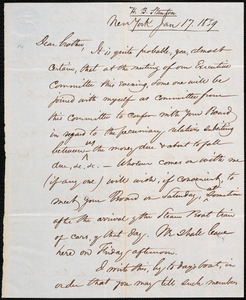 H. B. Stanton
New York Jan 17. 1839
Dear brother,
It is quite probable, yea, almost
certain, that at the meeting of our Executive
Committee this evening, some one will be
joined with myself as Committee from
this Committee to confer with your Board
in regard to the pecuniary relation subsisting
between us – the money due & about to fall
due, &c. &c. – Whoever comes on with me
(if any one) will wish, if convenient, to
meet your Board on Saturday, at
after the arrival of the Steam Boat line
of cars, of that day. We shall leave
here on Friday afternoon.
I write this, by to day's boat, in
order that you may tell such members